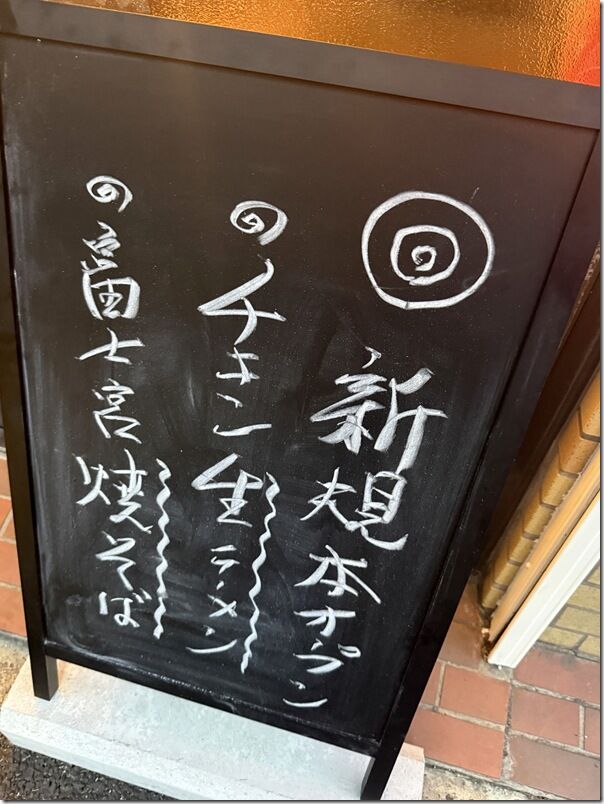 新規本オープン
チキン生ラーメン
富士宮焼そば